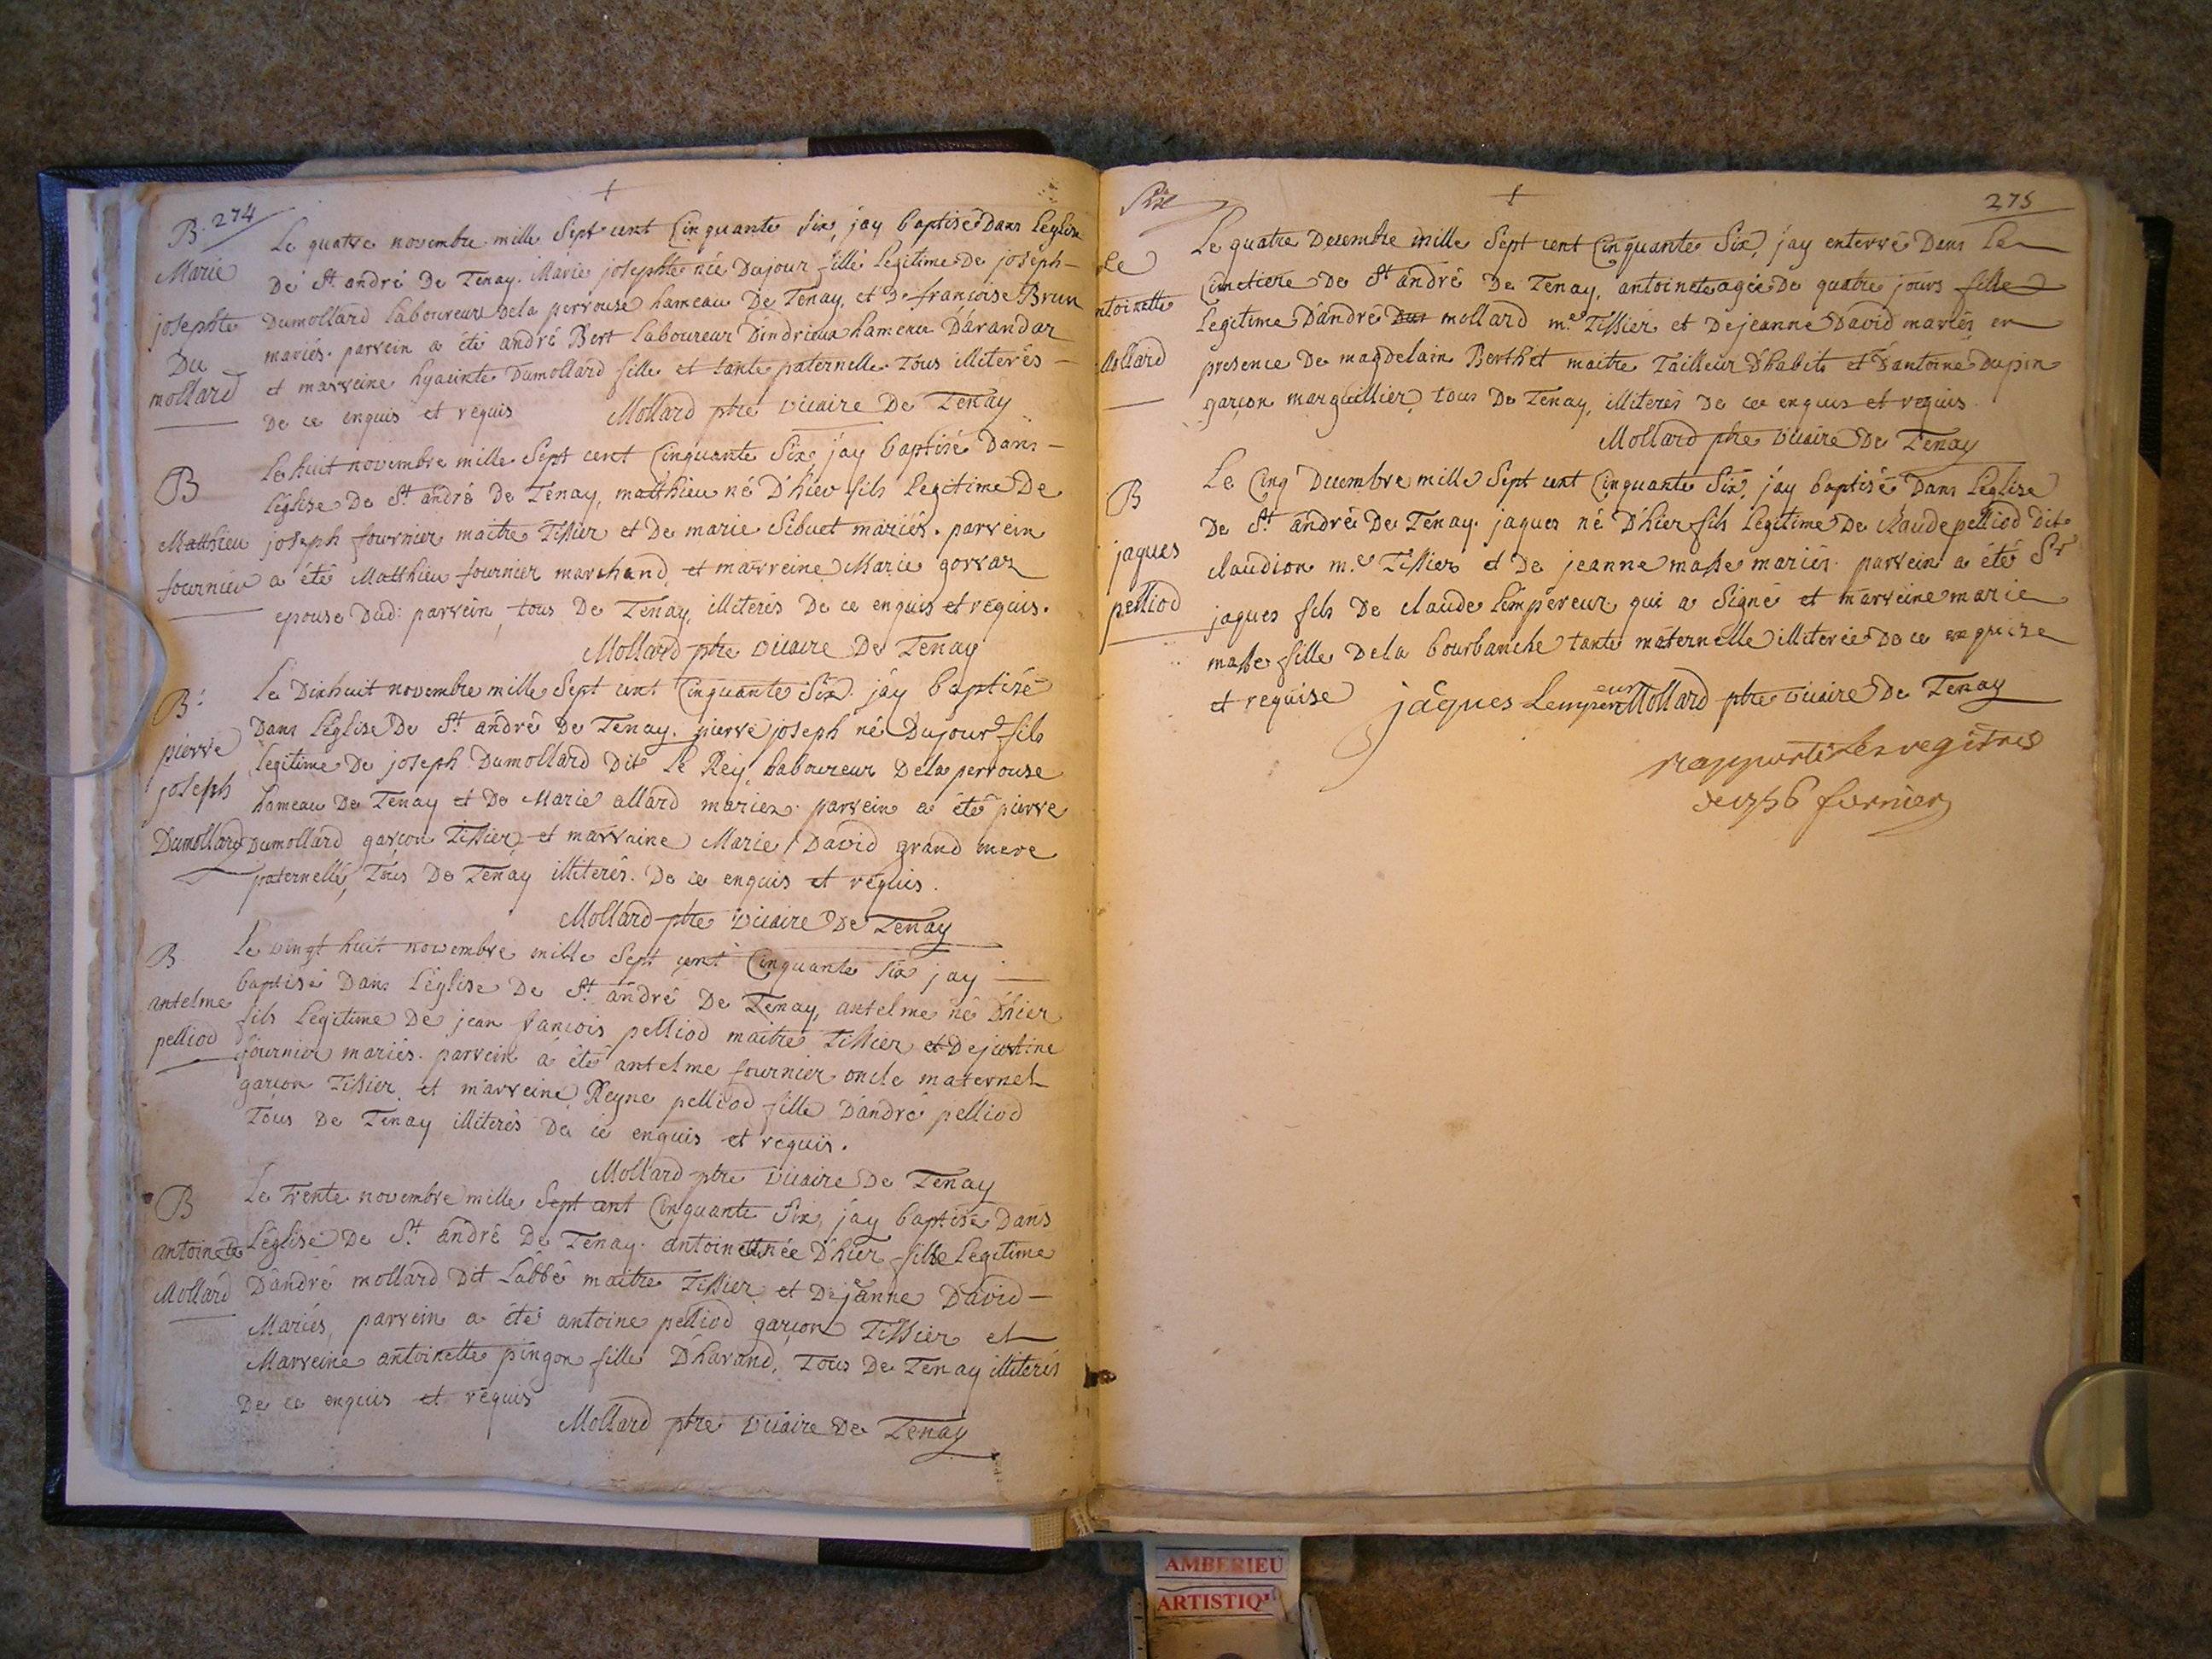 B. 274
Le quatre novembre mille Sept cent Cinquante Six, jay baptisé Dans Leglise
Marie
De St. andré De Tenay. Marie josephte née Dujour fille Legitime De joseph
josephte
Dumollard Laboureur Dela perrouse hameau De Tenay, et De francoise Brun
Du
mariés. parrein a été andré Bert Laboureur Dindrieux hameau Darandar
mollard
et marreine hyacinte Dumollard fille et tante paternelle Tous illiterés
De ce enquis et requis Mollard ptre vicaire De Tenay
B
Le huit novembre mille Sept cent Cinquante Six, jay baptisé Dans
Léglise De St andré De Tenay, matthieu né D'hier fils Legitime De
Matthieu
joseph fournier maitre Tissier et De marie Sibuet mariés. parrein
fournier
a été Matthieu fournier marchand, et marreine Marie gorraz
epouse Dud: parrein, tous De Tenay, illiterés De ce enquis et requis.
Mollard ptre vicaire De Tenay
B.
Le Dixhuit novembre mille Sept cent Cinquante Six. jay baptisé
Dans Léglise De St andré De Tenay. pierre joseph né Dujour fils
pierre
Legitime De joseph Dumollard Dit Le Rey Laboureur Dela perrouse
joseph
hameau De Tenay et De Marie allard mariez. parrein a été pierre
Dumollard
Dumollard garçon Tissier et marraine Marie David grand mere
paternelle, Tous De Tenay illiterés. De ce enquis et requis.
Mollard ptre vicaire De Tenay
B.
Le vingt huit novembre mille Sept cent Cinquante Six jay
baptisé Dans Léglise De St. andré De Tenay, antelme né D'hier
antelme
fils Legitime De jean francois pelliod maitre Tissier et De justine
pelliod
fournier mariés. parrein a été antelme fournier oncle maternel
garcon Tissier. et marreine Reyne pelliod fille D'andré pelliod
Tous De Tenay illiterés De ce enquis et requis.
Mollard ptre vicaire De Tenay
B
Le Trente novembre mille Sept cent Cinquante Six, jay baptisé Dans
antoinete
Léglise De St. andré De Tenay. antoinette née D'hier fille Legitime
Mollard
D'andré mollard Dit Labbé maitre Tissier et De jeanne David
Mariés, parrein a été antoine pelliod garcon Tissier et
Marreine antoinette pingon fille D'harand, Tous De Tenay illiterés
De ce enquis et requis
Mollard ptre vicaire De Tenay
275
Le quatre Decembre mille Sept cent Cinquante Six, jay enterré Dans Le
Cimetiere De St andré De Tenay, antoinete agée De quatre jours fille
ntoinette
Legitime D'andré mollard m.e Tissier et De jeanne David mariés en
Mollard
presence De magdelain Berthet maitre Tailleur D'habits et D'antoine Dupin
garçon marguillier, tous De Tenay, illiterés De ce enquis et requis.
Mollard ptre vicaire De Tenay
B
Le Cinq Decembre mille Sept cent Cinquante Six, jay baptisé Dans Léglise
De St. andré De Tenay. jaques né D'hier fils Legitime De claude pelliod Dit
jaques
claudion m.e Tissier et De jeanne masse mariés. parrein a été Sr
pelliod
jaques fils De claude Lempereur qui a Signé et marreine marie
masse fille Dela bourbanche tante maternelle illiterée De ce enquise
et requise jacques Lempereur Mollard ptre vicaire De Tenay
rapporté Les regitres
de 1756 furnier
AMBERIEU
ARTISTIQ